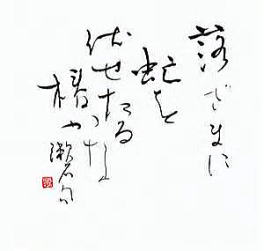 落ざまに
虻を
伏せたる
椿かな
漱石句